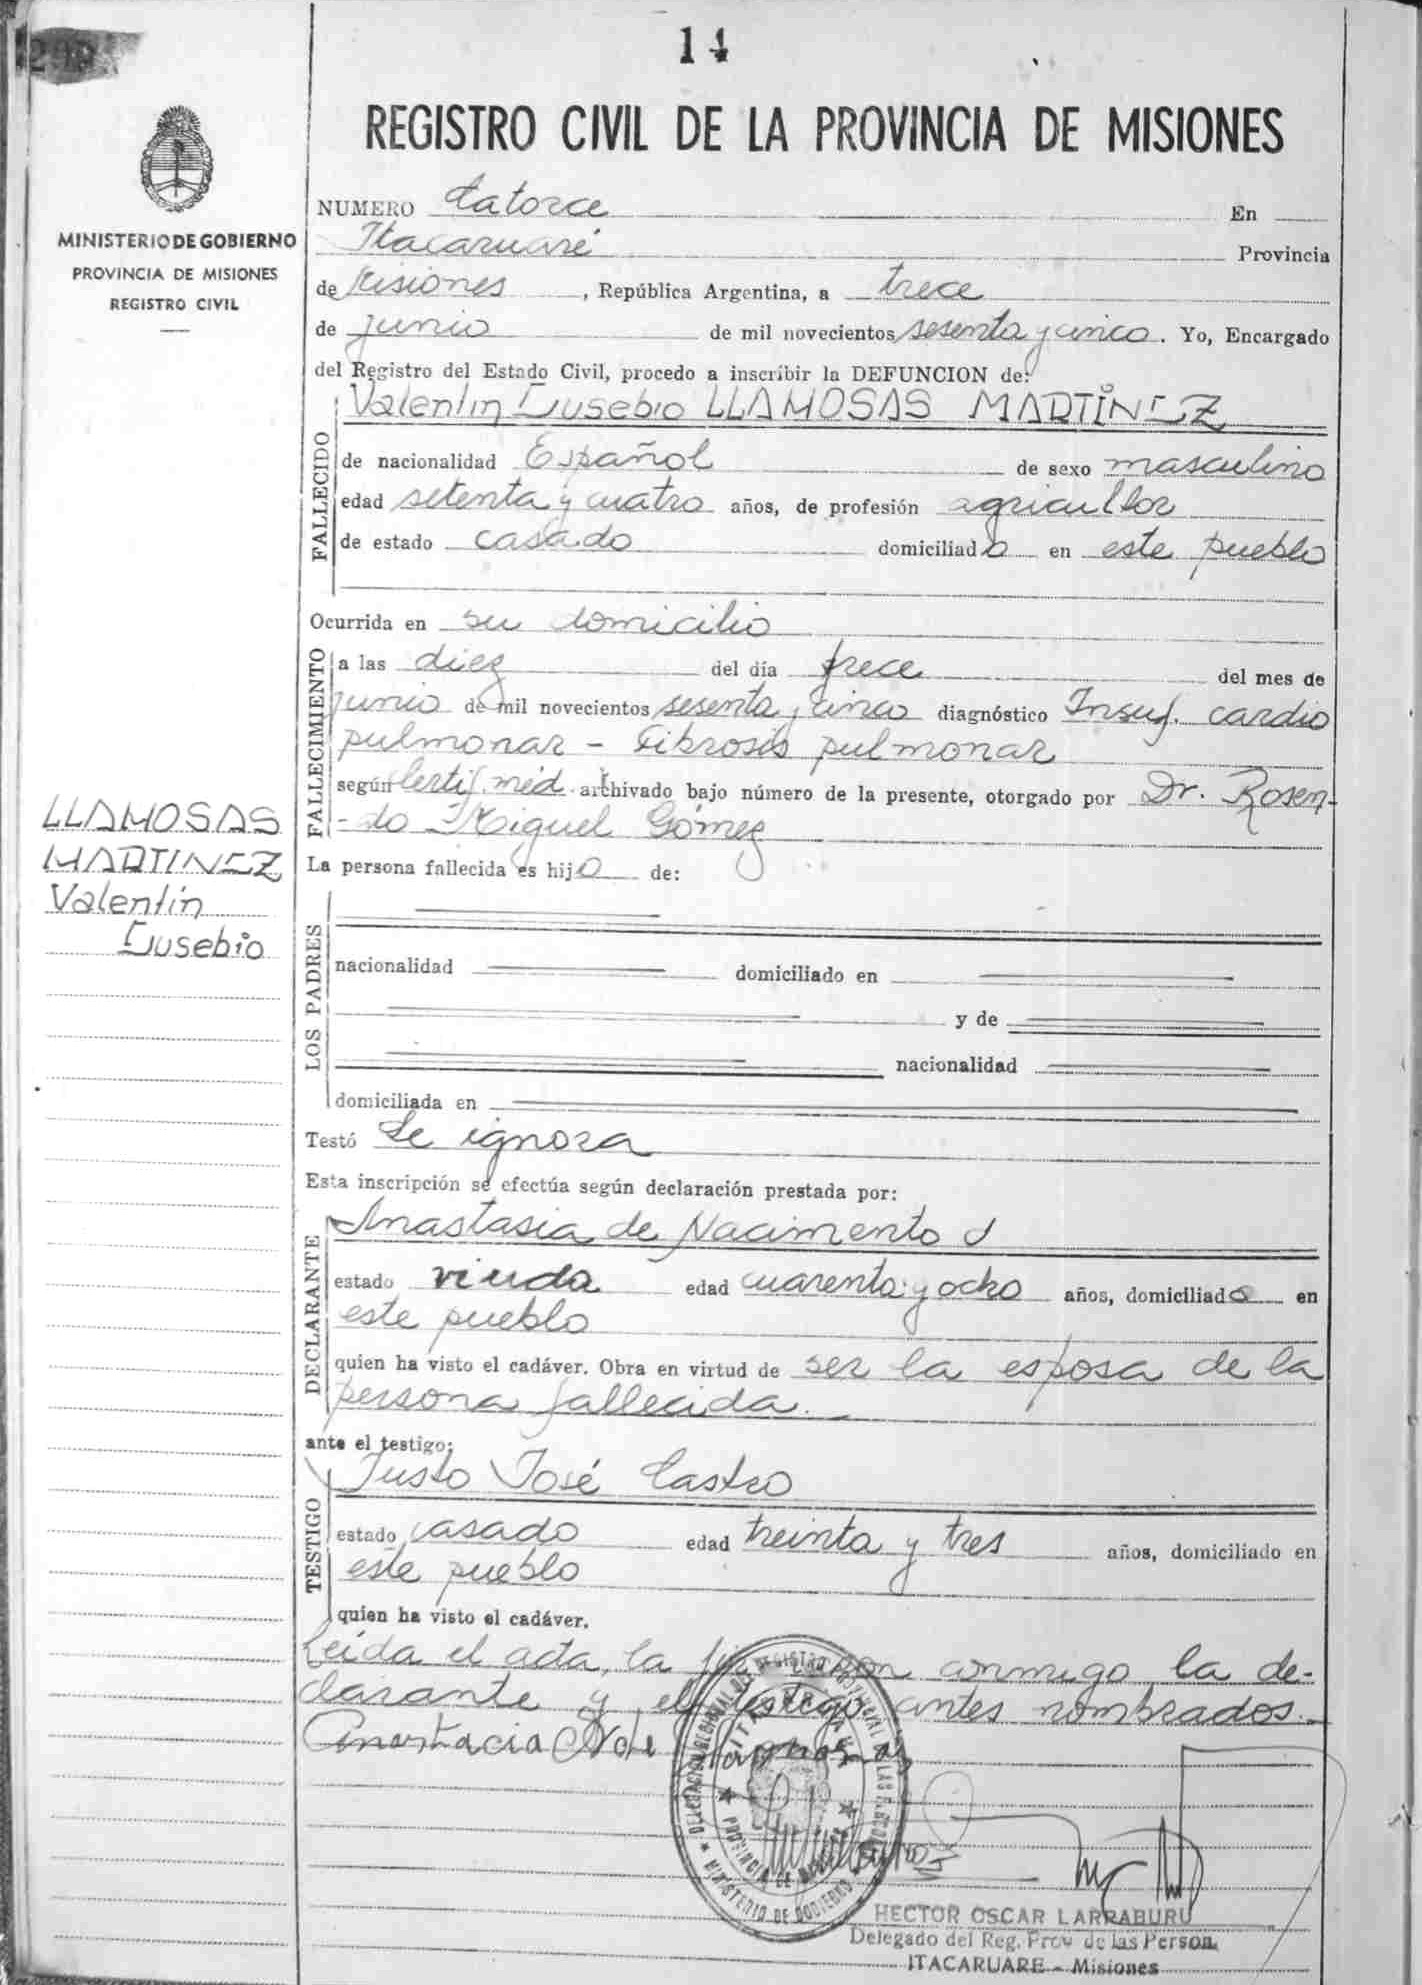 14
REGISTRO CIVIL DE LA PROVINCIA DE MISIONES
MINISTERIO DE GOBIERNO
PROVINCIA DE MISIONES
REGISTRO CIVIL
NUMERO Catorce En
Itacaruaré Provincia
de Misiones, República Argentina, a trece
de junio de mil novecientos sesenta y cinco. Yo, Encargado
del Registro del Estado Civil, procedo a inscribir la DEFUNCION de:
Valentin Eusebio LLAMOSAS MARTINEZ
FALLECIDO
de nacionalidad Español de sexo masculino
edad setenta y cuatro años, de profesión agricultor
de estado casado domiciliado en este pueblo
Ocurrida en su domicilio
FALLECIMIENTO
a las diez del día trece del mes de
junio de mil novecientos sesenta y cinco diagnóstico Insuf. cardio
pulmonar - Fibrosis pulmonar
según Certif. méd. archivado bajo número de la presente, otorgado por Dr. Rosen-
-do Miguel Gómez
LLAMOSAS
MARTINEZ
Valentin
Eusebio
La persona fallecida es hijo de:
LOS PADRES
nacionalidad domiciliado en
y de
nacionalidad
domiciliada en
Testó Se ignora
Esta inscripción se efectúa según declaración prestada por:
DECLARANTE
Anastasia de Nacimento
estado viuda edad cuarenta y ocho años, domiciliada en
este pueblo
quien ha visto el cadáver. Obra en virtud de ser la esposa de la
persona fallecida.
ante el testigo:
TESTIGO
Justo José Castro
estado casado edad treinta y tres años, domiciliado en
este pueblo
quien ha visto el cadáver.
Leida el acta, la firmaron conmigo la de-
clarante y el testigo antes nombrados.
Anastacia N de
HECTOR OSCAR LARRABURU
Delegado del Reg. Prov de las Person.
ITACARUARE - Misiones